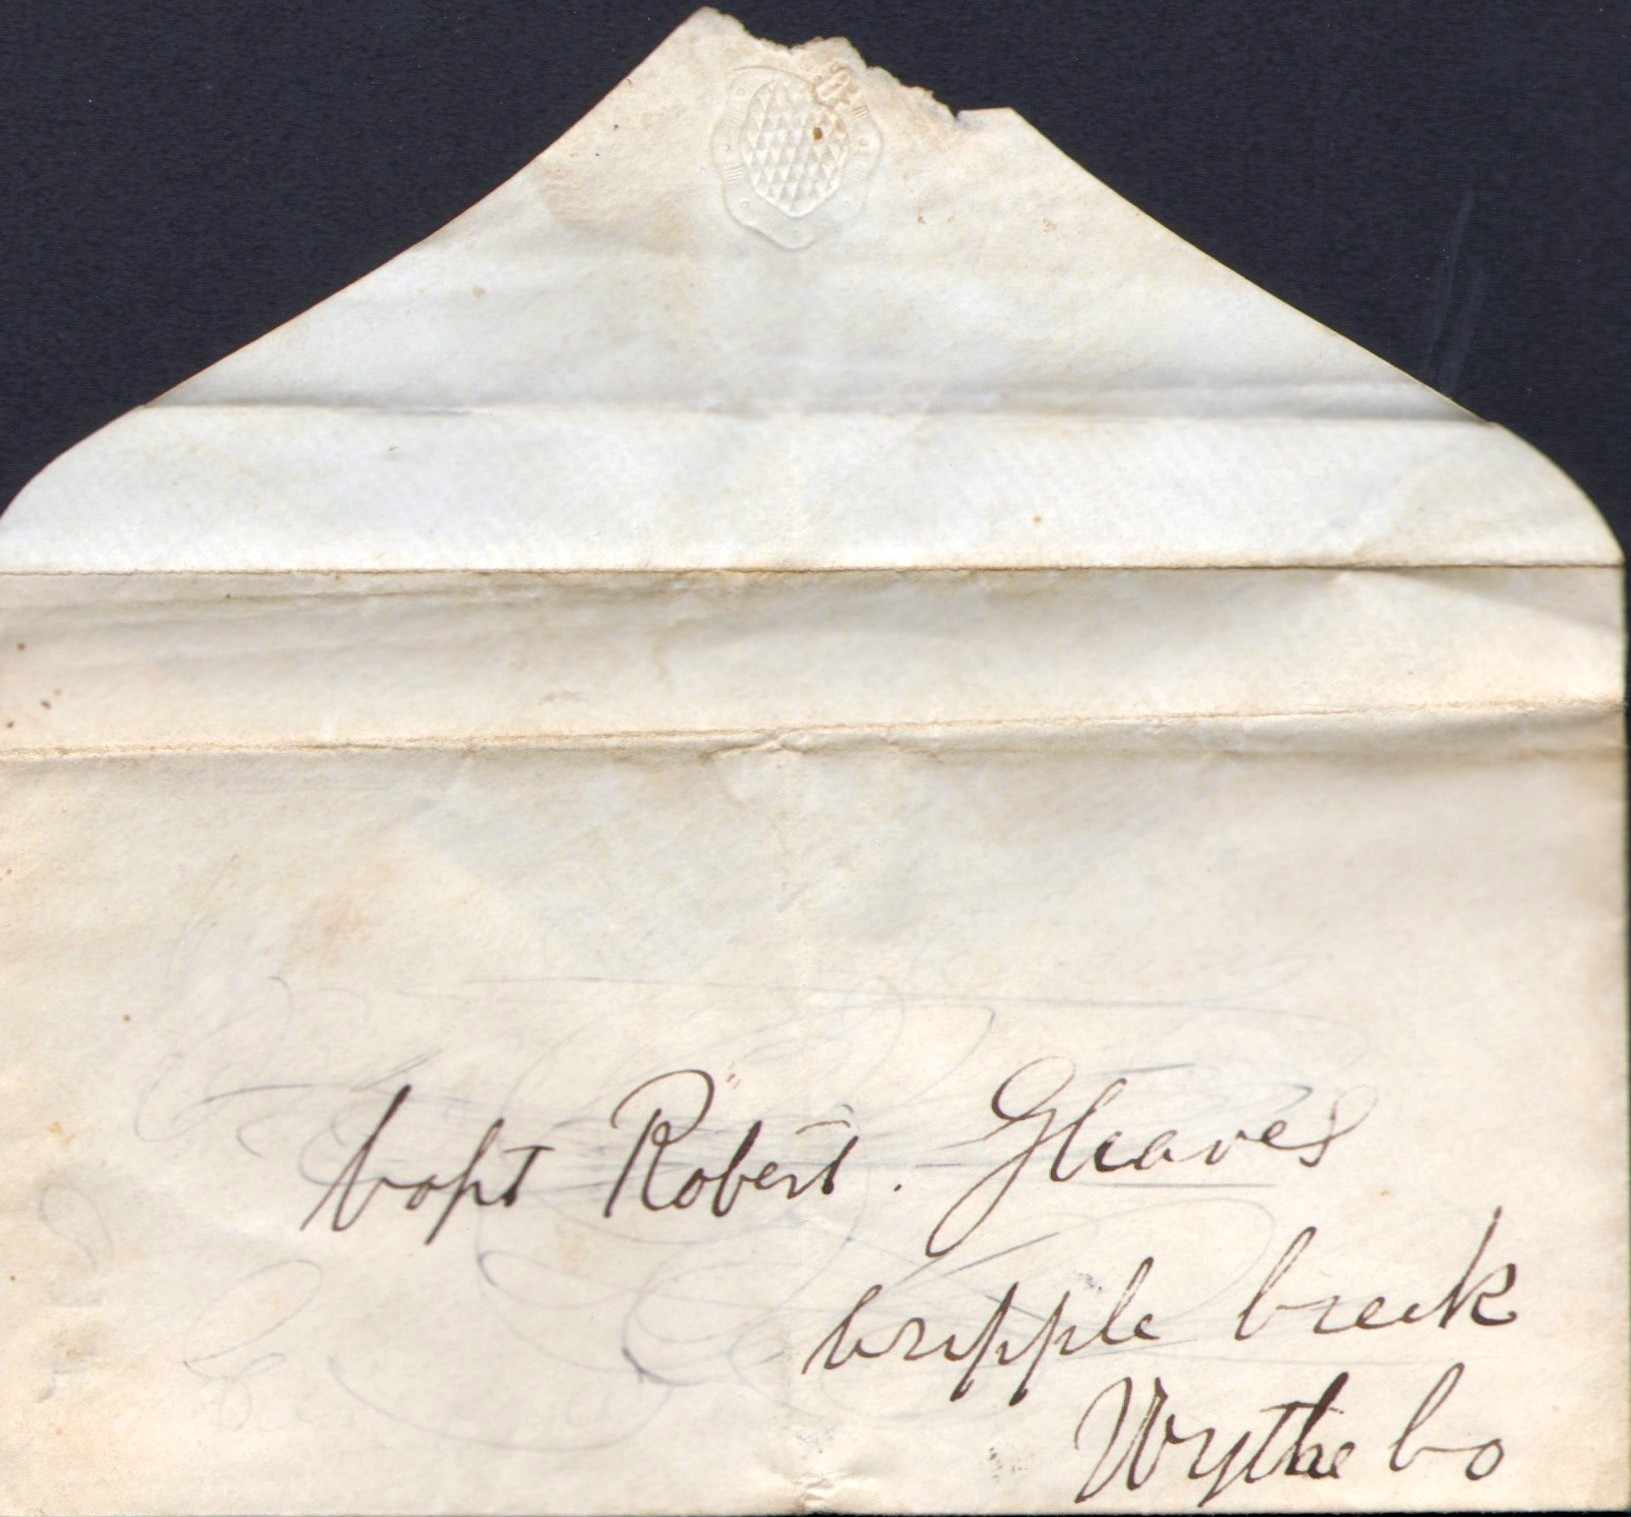 Capt Robert. Gleaves
Cripple Creek
Wythe Co